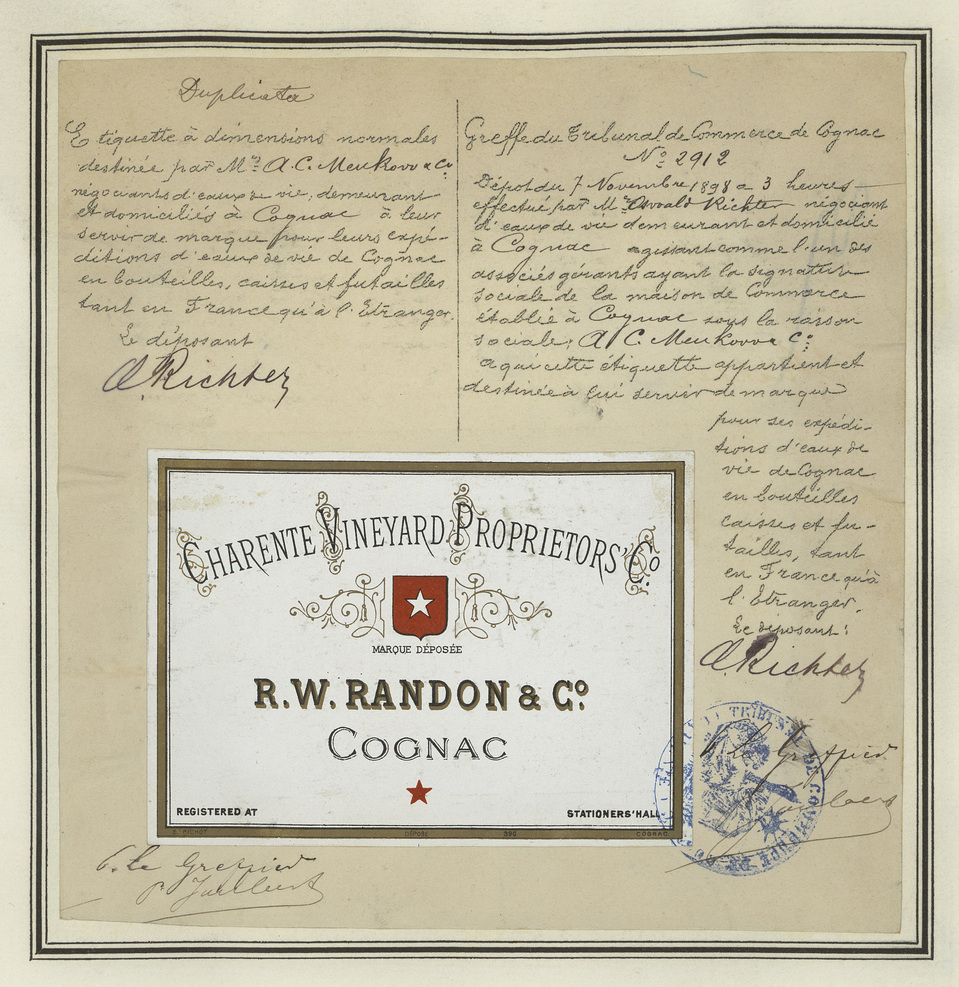 Duplicata
Etiquette à dimensions normales
destinée par Mrs A. C. Meukow & Co
négociants d'eaux de vie, demeurant
et domiciliés à Cognac à leur
servir de marque pour leurs expé-
ditions d'eaux de vie de Cognac
en bouteilles, caisses et futailles
tant en France qu'à l'Etranger.
Le déposant
A. Richter
Greffe du Tribunal de Commerce de Cognac
No 2912
Dépôt du 7 Novembre 1898 a 3 heures
effectué par Mr Oswald Richter négociant
d'eaux de vie demeurant et domicilié
à Cognac agissant comme l'un des
associés gérants ayant la signature
sociale de la maison de Commerce
établie à Cognac sous la raison
sociale: A. C. Meukow & Co
a qui cette étiquette appartient et
destinée à lui servir de marque
pour ses expédi-
tions d'eaux de
vie de Cognac
en bouteilles
caisses et fu-
tailles, tant
en France qu'à
l'Etranger.
Le déposant:
Richter
CHARENTE VINEYARD PROPRIETORS' Co.
MARQUE DÉPOSÉE
R.W. RANDON & Co.
COGNAC
REGISTERED AT
STATIONERS' HALL
DÉPOSÉ
COGNAC
TRIBUNAL DE COMMERCE DE
le Greffier
le Greffier